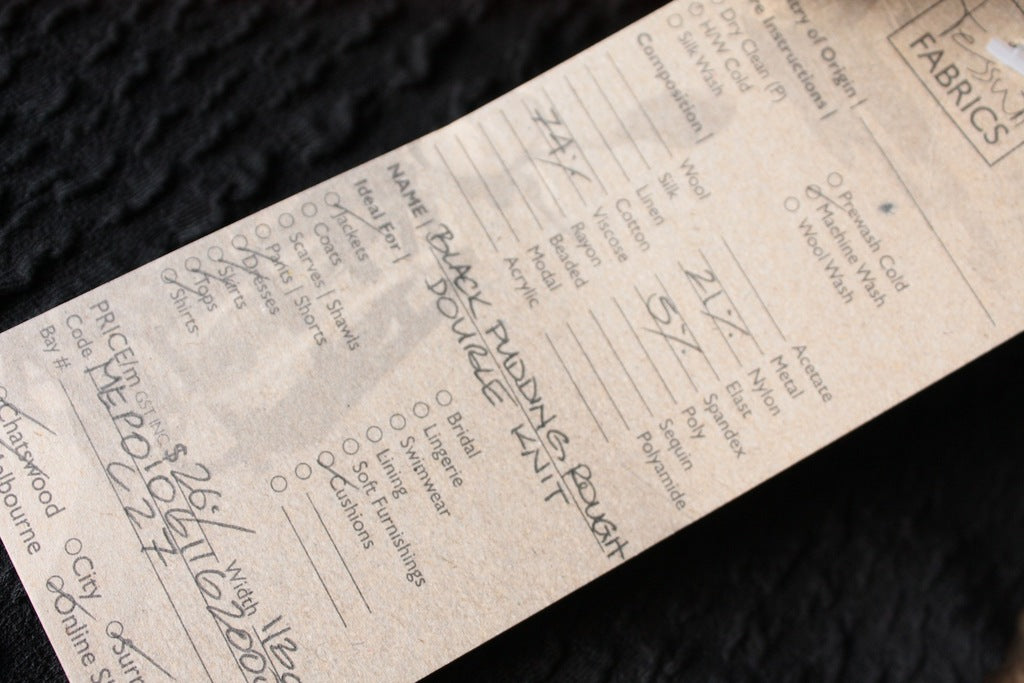 Tessuti
FABRICS
try of Origin |
re Instructions |
Dry Clean (P)
H/W Cold
Silk Wash
Prewash Cold
Machine Wash
Wool Wash
Composition |
Wool
Silk
Linen
Cotton
74% Viscose
Rayon
Beaded
Modal
Acrylic
Acetate
Metal
21% Nylon
Elast
5% Spandex
Poly
Sequin
Polyamide
NAME | BLACK PUDDING ROUGH
DOUBLE KNIT
Ideal For |
Jackets
Coats
Scarves | Shawls
Pants | Shorts
Dresses
Skirts
Tops
Shirts
Bridal
Lingerie
Swimwear
Lining
Soft Furnishings
Cushions
PRICE/m GST INC $26.- Width
Code
Bay #
C27
Chatswood
City
elbourne
Online S
Surr